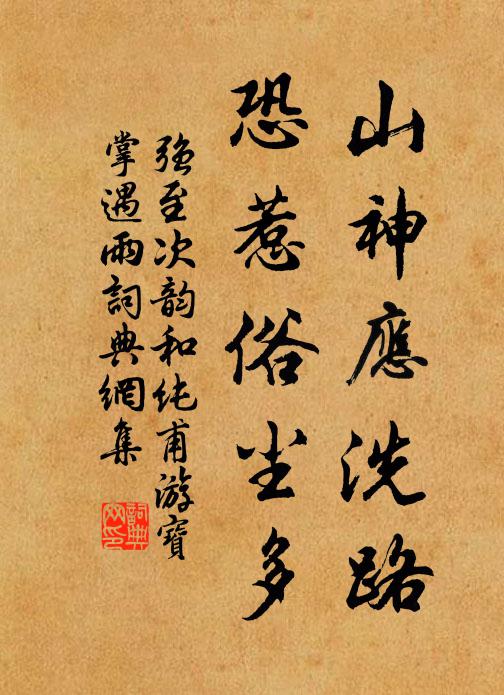 山神應洗路
恐惹俗尘多
強至次韵和纯甫游寶
掌遇雨詞典網集
詞典网印